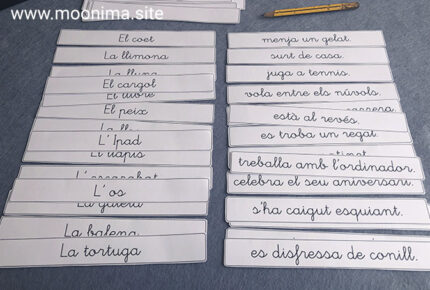 www.moonima.site
El coet
La llimona
La lluna
El cargol
El llibre
El peix
La ll
L' Ipad
El llapis
L' os
La guilera
La balena
La tortuga
menja un gelat.
surt de casa.
juga a tennis.
vola entre els núvols.
carrera.
està al revés.
es troba un regal.
treballa amb l'ordinador.
celebra el seu aniversari.
s'ha caigut esquiant.
es disfressa de conill.